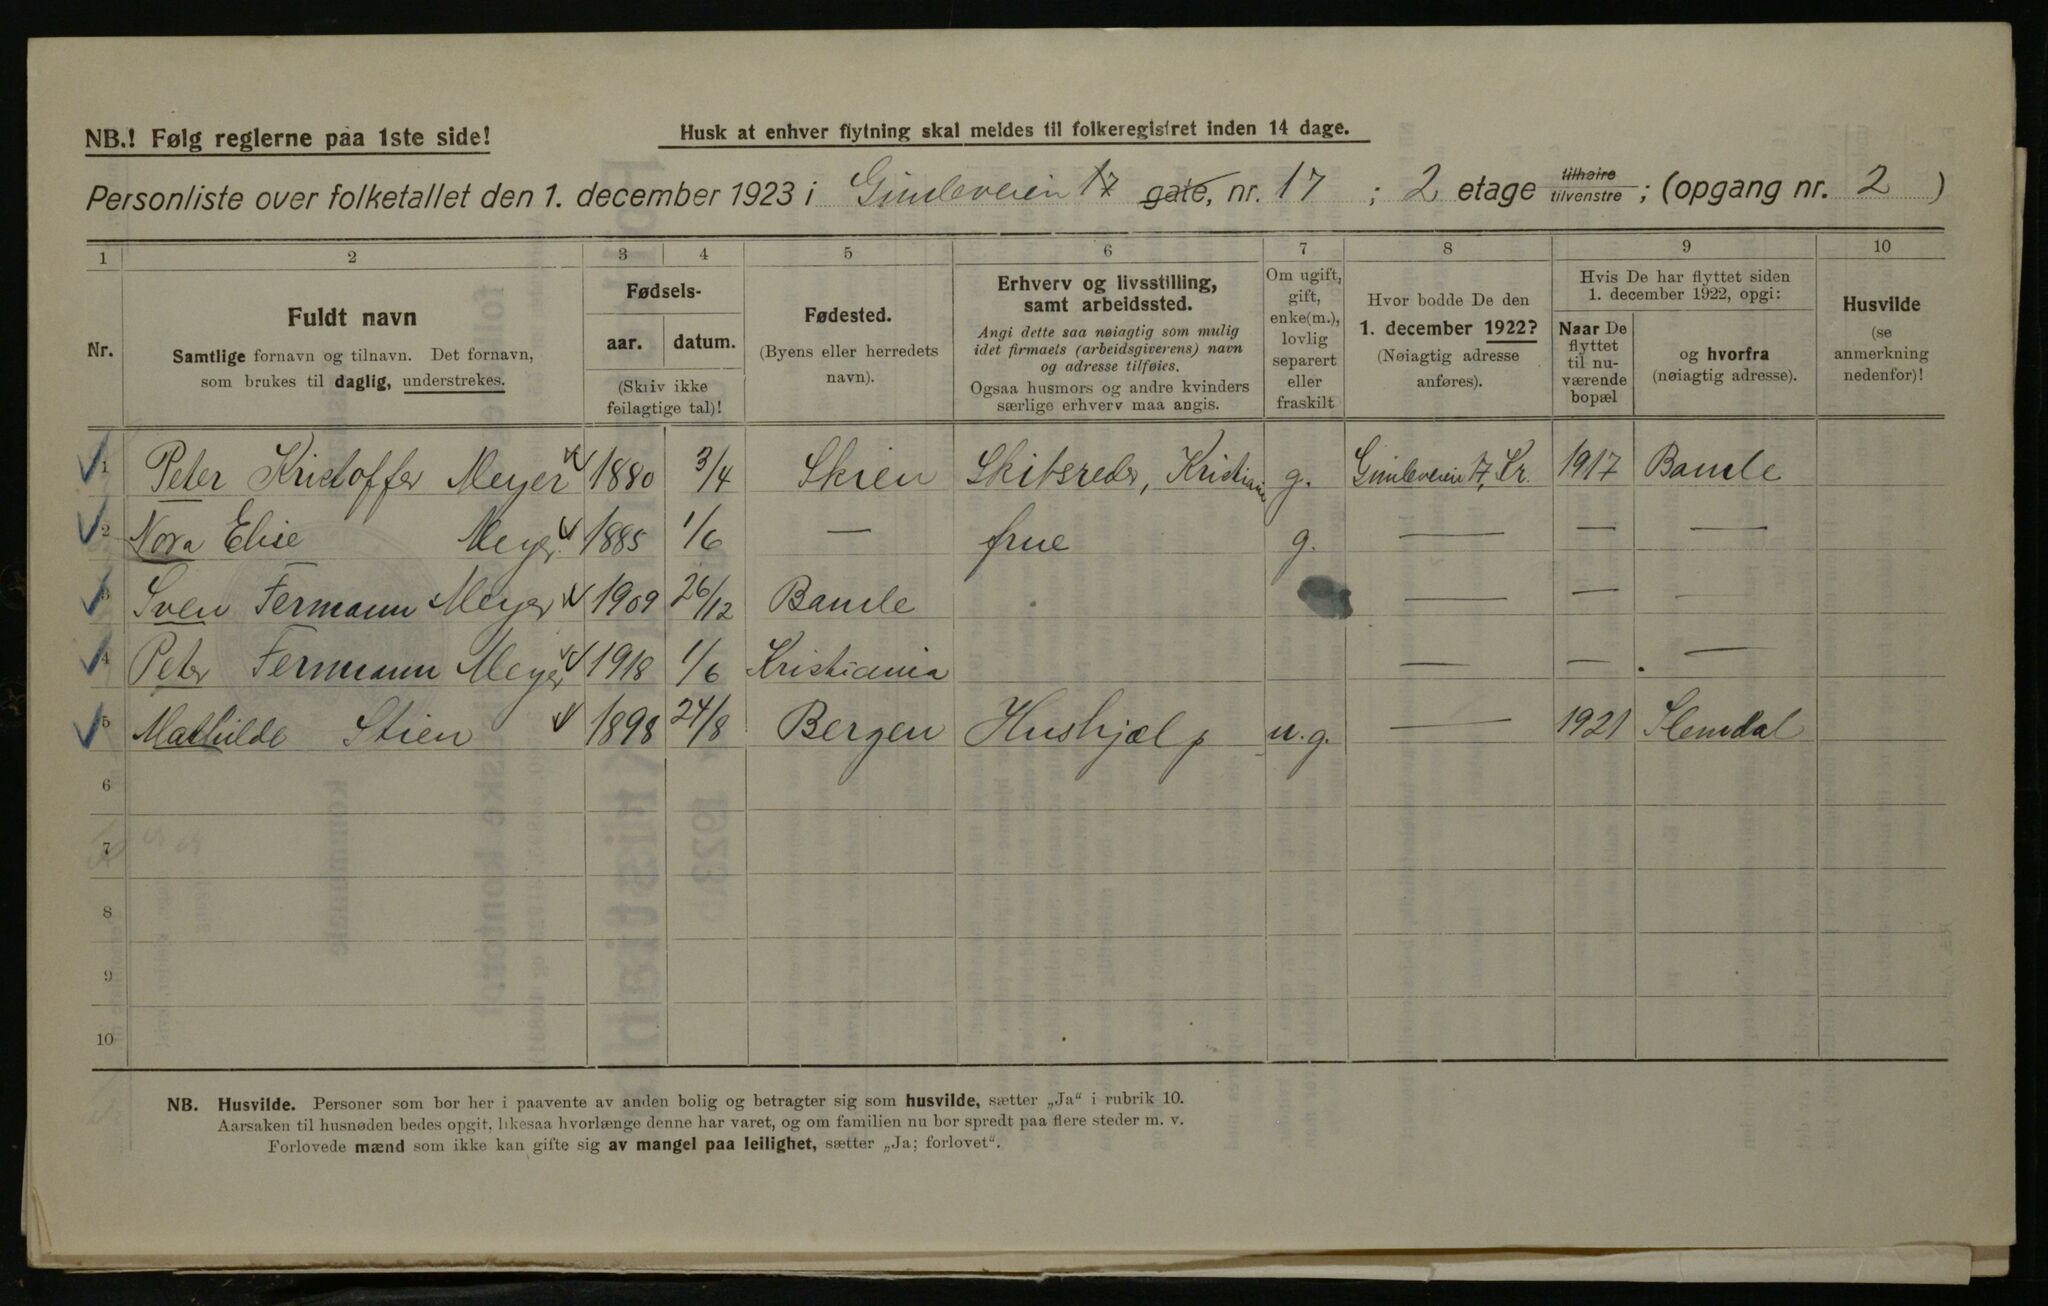 NB.! Følg reglerne paa 1ste side!
Husk at enhver flytning skal meldes til folkeregistret inden 14 dage.
Personliste over folketallet den 1. december 1923 i Gimleveien 17 gate, nr. 17 ; 2 etage tilhøire tilvenstre ; (opgang nr. 2 )
1 2 3 4 5 6 7 8 9 10
Nr.
Fuldt navn
Samtlige fornavn og tilnavn. Det fornavn,
som brukes til daglig, understrekes.
Fødsels-
aar. datum.
(Skriv ikke
feilagtige tal)!
Fødested.
(Byens eller herredets
navn).
Erhverv og livsstilling,
samt arbeidssted.
Angi dette saa nøiagtig som mulig
idet firmaets (arbeidsgiverens) navn
og adresse tilføies.
Ogsaa husmors og andre kvinders
særlige erhverv maa angis.
Om ugift,
gift,
enke(m.),
lovlig
separert
eller
fraskilt
Hvor bodde De den
1. december 1922?
(Nøiagtig adresse
anføres).
Hvis De har flyttet siden
1. december 1922, opgi:
Naar De
flyttet
til nu-
værende
bopæl
og hvorfra
(nøiagtig adresse).
Husvilde
(se
anmerkning
nedenfor)!
1 Peter Kristoffer Meyer 1880 3/4 Skien Skibsreder, Kristiania g. Gimleveien 17, Kr. 1917 Bamle
2 Nora Elise Meyer 1885 1/6 — frue g. — — —
3 Sven Fermann Meyer 1909 26/12 Bamle — — —
4 Peter Fermann Meyer 1918 1/6 Kristiania — — —
5 Mathilde Stien 1898 24/8 Bergen Hushjælp u.g. — 1921 Slemdal
6
7
8
9
10
NB. Husvilde. Personer som bor her i paavente av anden bolig og betragter sig som husvilde, sætter „Ja" i rubrik 10.
Aarsaken til husnøden bedes opgit, likesaa hvorlænge denne har varet, og om familien nu bor spredt paa flere steder m. v.
Forlovede mænd som ikke kan gifte sig av mangel paa leilighet, sætter „Ja; forlovet".